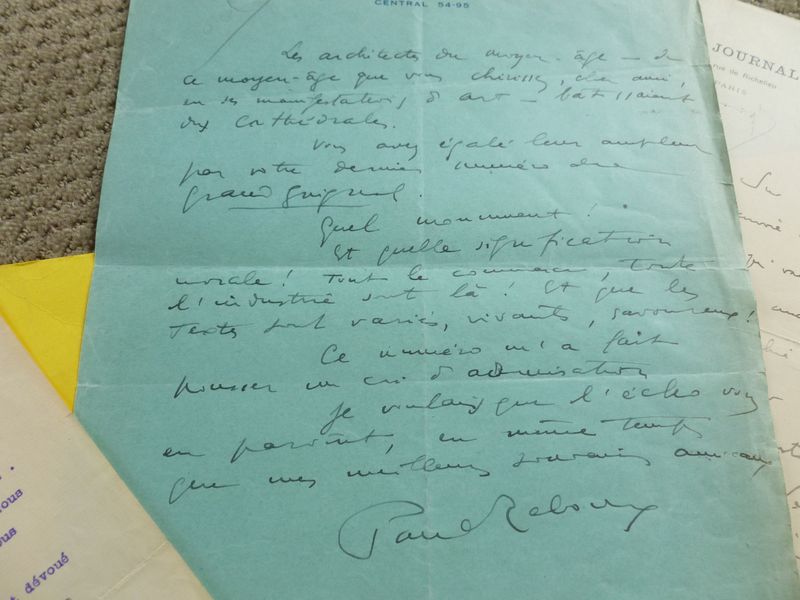 CENTRAL 54-95
Les architectes du moyen-âge — de
ce moyen-âge que vous chérissez, cher ami,
en ses manifestations d'art — bâtissaient
des Cathédrales.
Vous avez égalé leur ampleur
par votre dernier numéro du
grand guignol.
Quel monument !
Et quelle signification
morale ! Tout le commerce, toute
l'industrie sont là ! Et que les
textes sont variés, vivants, savoureux !
Ce numéro m'a fait
pousser un cri d'admiration
Je voulais que l'écho vous
en parvînt, en même temps
que mes meilleurs souvenirs amicaux
Paul Reboux
JOURNAL
rue de Richelieu
PARIS
dévoué